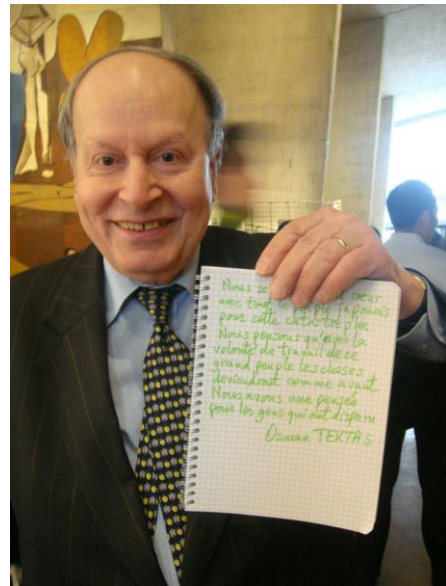 Nous so cœur
avec tout le peuple japonais
pour cette catastrophe
Nous pensons qu'avec la
volonté de travail de ce
grand peuple les choses
deviendront comme avant
Nous avons une pensée
pour les gens qui ont disparu
Osman TEKTAS